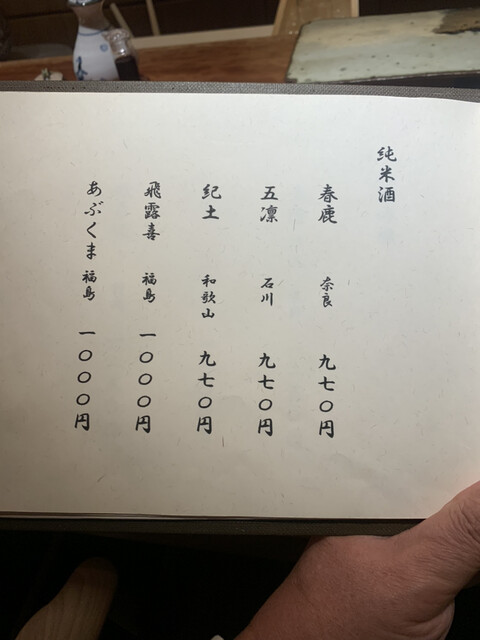 純米酒
春鹿 奈良 九七〇円
五凛 石川 九七〇円
紀土 和歌山 九七〇円
飛露喜 福島 一〇〇〇円
あぶくま 福島 一〇〇〇円